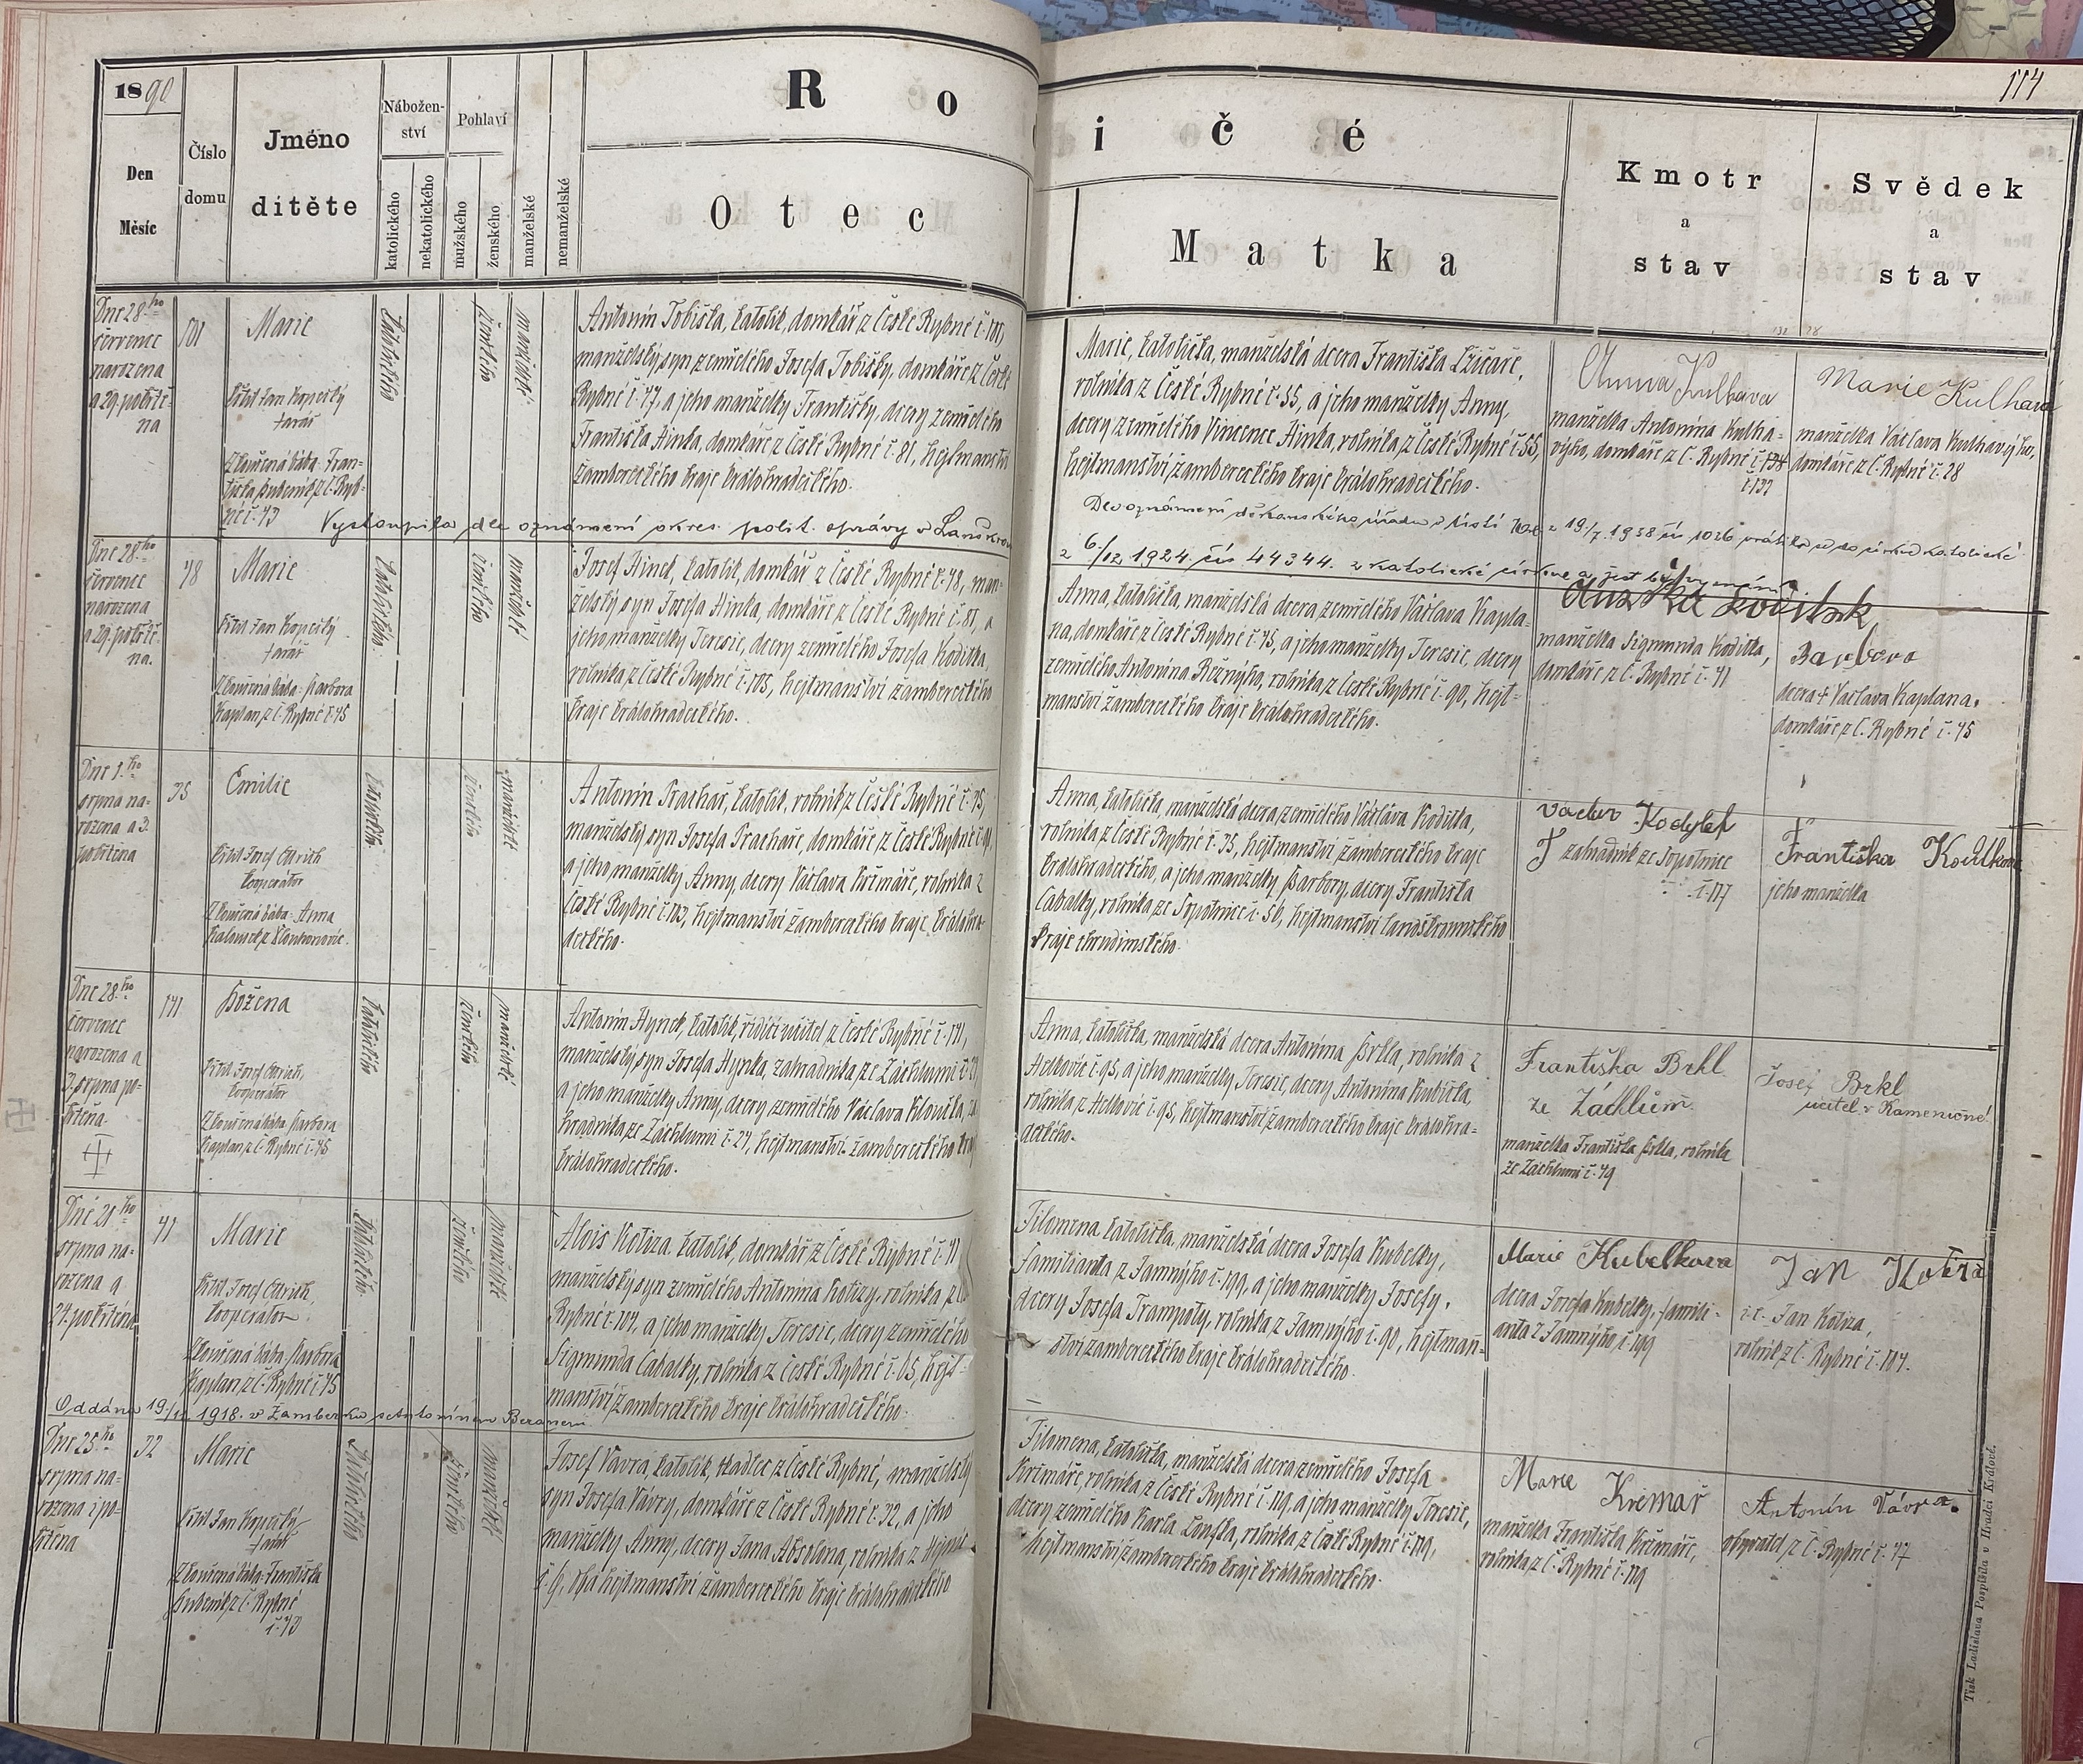 1890
114
Den
Měsíc
Číslo
domu
Jméno
dítěte
Nábožen-
ství
katolického
nekatolického
Pohlaví
mužského
ženského
manželské
nemanželské
Rodičé
Otec
Matka
Kmotr
a
stav
Svědek
a
stav
Dne 28.ho
července
narozena
a 29. pokřtě-
na
101
Marie
Křtil Jan Kopecký
farář
Zkoušená bába: Fran-
tiška
z Č. Ryb-
né č. 43
katolického
ženského
manželské
Antonín Tobiška, katolík, domkář z České Rybné č. 101,
manželský syn zemřelého Josefa Tobišky, domkáře z České
Rybné č. 47, a jeho manželky Františky, dcery zemřelého
Františka Hinka, domkáře z České Rybné č. 81, hejtmanství
žambereckého kraje králohradeckého.
Marie, katolička, manželská dcera Františka Lžičaře,
rolníka z České Rybné č. 55, a jeho manželky Anny,
dcery zemřelého Vincence Hinka, rolníka z České Rybné č. 55,
hejtmanství žambereckého kraje králohradeckého.
Anna Kulhava
manželka Antonína Kulha-
výho, domkáře z Č. Rybné č. 134
č. 132
Marie Kulhavá
manželka Václava Kulhavýho,
domkáře z Č. Rybné č. 28
Vystoupila dle oznámení okres. polit. správy v Lanškrouně
z 6./12. 1924. čís 44344. z katolické církve a jest bez vyznání.
Dle oznámení děkanského úřadu v Ústí n. O. z 19./7. 1938 čís 1026 vrátila se do církve katolické
Dne 28.ho
července
narozena
a 29. pokřtě-
na.
48
Marie
Křtil Jan Kopecký
farář
Zkoušená bába: Barbora
Kaplan z Č. Rybné č. 45
katolického
ženského
manželské
Josef Hinek, katolík, domkář z České Rybné č. 48, man-
želský syn Josefa Hinka, domkáře z České Rybné č. 81, a
jeho manželky Teresie, dcery zemřelého Josefa Koditka,
rolníka z České Rybné č. 105, hejtmanství žambereckého
kraje králohradeckého.
Anna, katolička, manželská dcera zemřelého Václava Kapla-
na, domkáře z České Rybné č. 45, a jeho manželky Teresie, dcery
zemřelého Antonína Režnýho, rolníka z České Rybné č. 90, hejt-
manství žambereckého kraje králohradeckého.
manželka Sigmunda Koditka,
domkáře z Č. Rybné č. 41
Barbora
dcera † Václava Kaplana,
domkáře z Č. Rybné č. 45
Dne 1.ho
srpna na-
rozena a 3.
pokřtěna
35
Emilie
Křtil Josef Ettrich
kooperátor
Zkoušená bába: Anna
katolického
ženského
manželské
Antonín Prachař, katolík, rolník z České Rybné č. 35,
manželský syn Josefa Prachaře, domkáře z České Rybné č. 91
a jeho manželky Anny, dcery Václava Křimáře, rolníka z
České Rybné č. 112, hejtmanství žambereckého kraje králohra-
deckého.
Anna, katolička, manželská dcera zemřelého Václava Koditka,
rolníka z České Rybné č. 35, hejtmanství žambereckého kraje
králohradeckého, a jeho manželky Barbory, dcery Františka
Cabalky, rolníka ze Sopotnice č. 56, hejtmanství lanškrounského
kraje chrudimského.
Václav Kodytek
zahradník ze Sopotnice
č. 117
Františka Koditkova
jeho manželka
Dne 28.ho
července
narozena a
3. srpna po-
křtěna.
141
Božena
Křtil Josef Ettrich,
kooperátor
Zkoušená bába Barbora
Kaplan z Č. Rybné č. 45
katolického
ženského
manželské
Antonín Hynek, katolík, řídící učitel z České Rybné č. 141,
manželský syn Josefa Hynka, zahradníka ze Záchlumí č. 21
a jeho manželky Anny, dcery zemřelého Václava Kloučka, za-
hradníka ze Záchlumí č. 21, hejtmanství žambereckého kraje
králohradeckého.
Anna, katolička, manželská dcera Antonína Brkla, rolníka z
Helkovic č. 95, a jeho manželky Teresie, dcery Antonína Kubíčka,
rolníka z Helkovic č. 95, hejtmanství žambereckého kraje králohra-
deckého.
Františka Brkl
ze Záchlumí
manželka Františka Brkla, rolníka
ze Záchlumí č. 49
Josef Brkl
učitel v Kameničné
Dne 21.ho
srpna na-
rozena a
24. pokřtěna
41
Marie
Křtil Josef Ettrich,
kooperátor
Zkoušená bába Barbora
Kaplan z Č. Rybné č. 45
katolického
ženského
manželské
Alois Kotiza, katolík, domkář z České Rybné č. 41
manželský syn zemřelého Antonína Kotizy, rolníka z Č.
Rybné č. 104, a jeho manželky Teresie, dcery zemřelého
Sigmunda Cabalky, rolníka z České Rybné č. 65, hejt-
manství žambereckého kraje králohradeckého.
Filomena, katolička, manželská dcera Josefa Kubelky,
familianta z Jamnýho č. 199, a jeho manželky Josefy,
dcery Josefa Trampoty, rolníka z Jamnýho č. 90, hejtman-
ství žambereckého kraje králohradeckého.
Marie Kubelkova
dcera Josefa Kubelky, famili-
anta z Jamnýho č. 199
Jan
Jan Kotiza,
rolník z Č. Rybné č. 104.
Oddána 19./11. 1918. v Žamberku s Antonínem Beranem.
Dne 25.ho
srpna na-
rozena i po-
křtěna
32
Marie
Křtil Jan Kopecký
farář
Zkoušená bába Františka
z Č. Rybné
č. 43
katolického
ženského
manželské
Josef Vávra, katolík, tkadlec z České Rybné, manželský
syn Josefa Vávry, domkáře z České Rybné č. 32, a jeho
manželky Anny, dcery Jana Absolona, rolníka z
č. 9, obá hejtmanství žambereckého kraje králohradeckého
Filomena, katolička, manželská dcera zemřelého Josefa
Křimáře, rolníka z České Rybné č. 119, a jeho manželky Teresie,
dcery zemřelého Karla Lenfka, rolníka z České Rybné č. 119,
hejtmanství žambereckého kraje králohradeckého.
Marie Křimař
manželka Františka Křimáře,
rolníka z Č. Rybné č. 119
Antonín Vávra.
obyvatel z Č. Rybné č. 47
Tisk Ladislava Pospíšila v Hradci Králové.